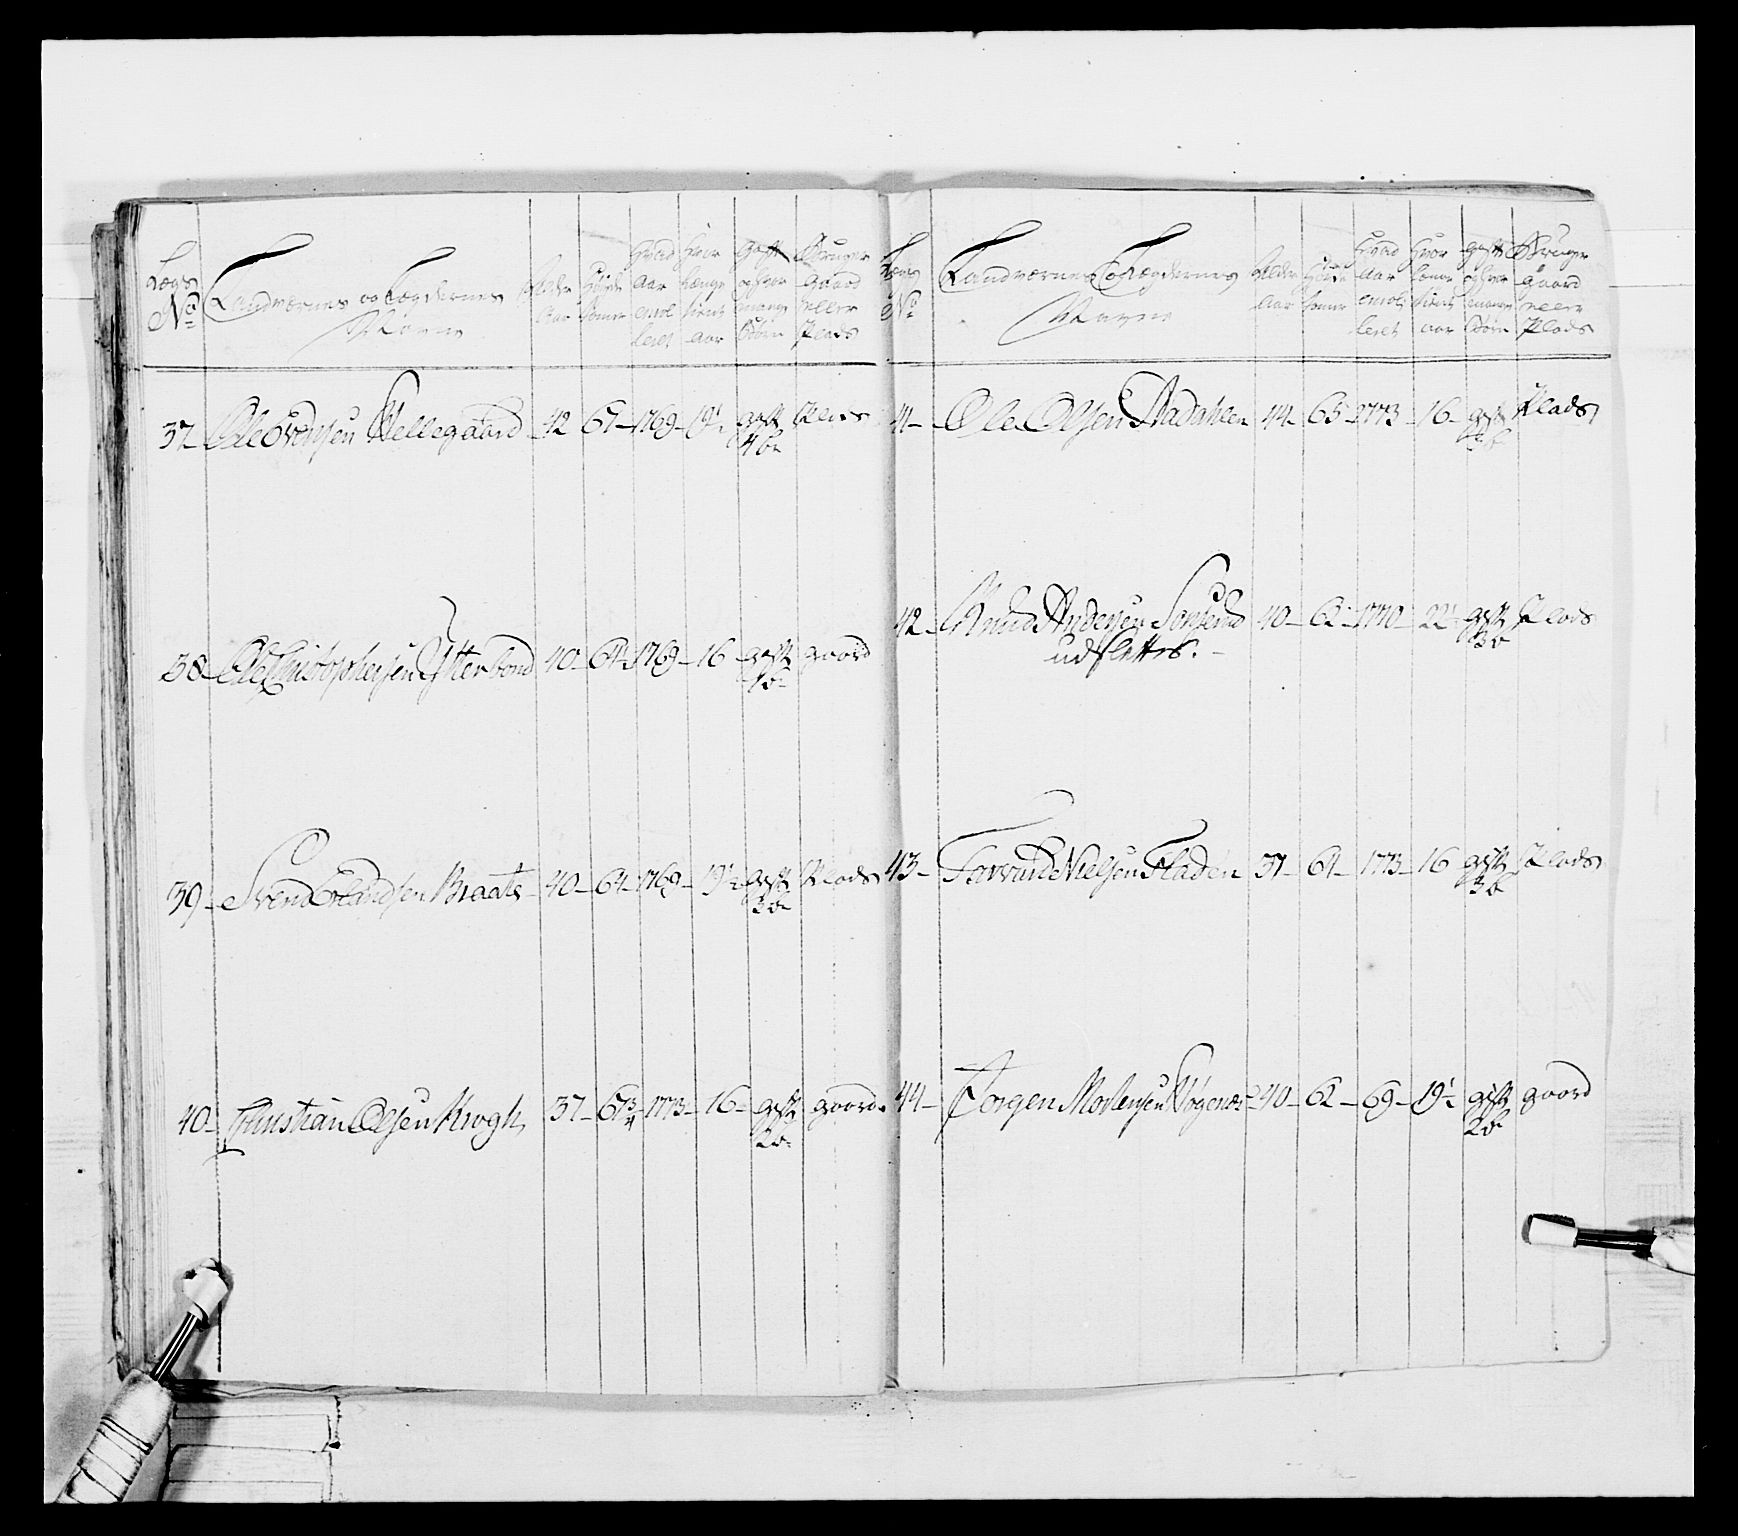 Lægs No
Landværnes og Lægdernes Navne
Alder Aar
Høyde Tomer
Hvad Aar enrol leret
Hvor Længe tient Aar
Gift og hvor mange Børn
Bruger Gaard eller Plads
37 Ole Svensen Hellegaard 42 67 1769 19 gift Plads
4 b
38 Ole Christophersen Ytterbond 40 64 1769 16 gift gaard
1 b
39 Svend Erlandsen Braate 40 64 1769 19½ gift Plads
3 b
40 Christian Olsen Krogh 37 67¾ 1773 16 gift gaard
2 b
Lægs No
Landværnes og Lægdernes Navne
Alder Aar
Høyde tomer
Hvad Aar enrol leret
Hvor Længe tient aar
gift og hvor mange Børn
Bruger gaard eller Plads
41 Ole Olsen Aadahlen 44 65 1773 16 gift Plads
3 b
42 Knud Andersen 40 62 1770 22 gift Plads
3 b
udslettes.
43 Nielsen Fladen 37 61 1773 16 gift Plads
3 b
44 Jørgen Mortensen 40 62 69 19½ gift gaard
2 b